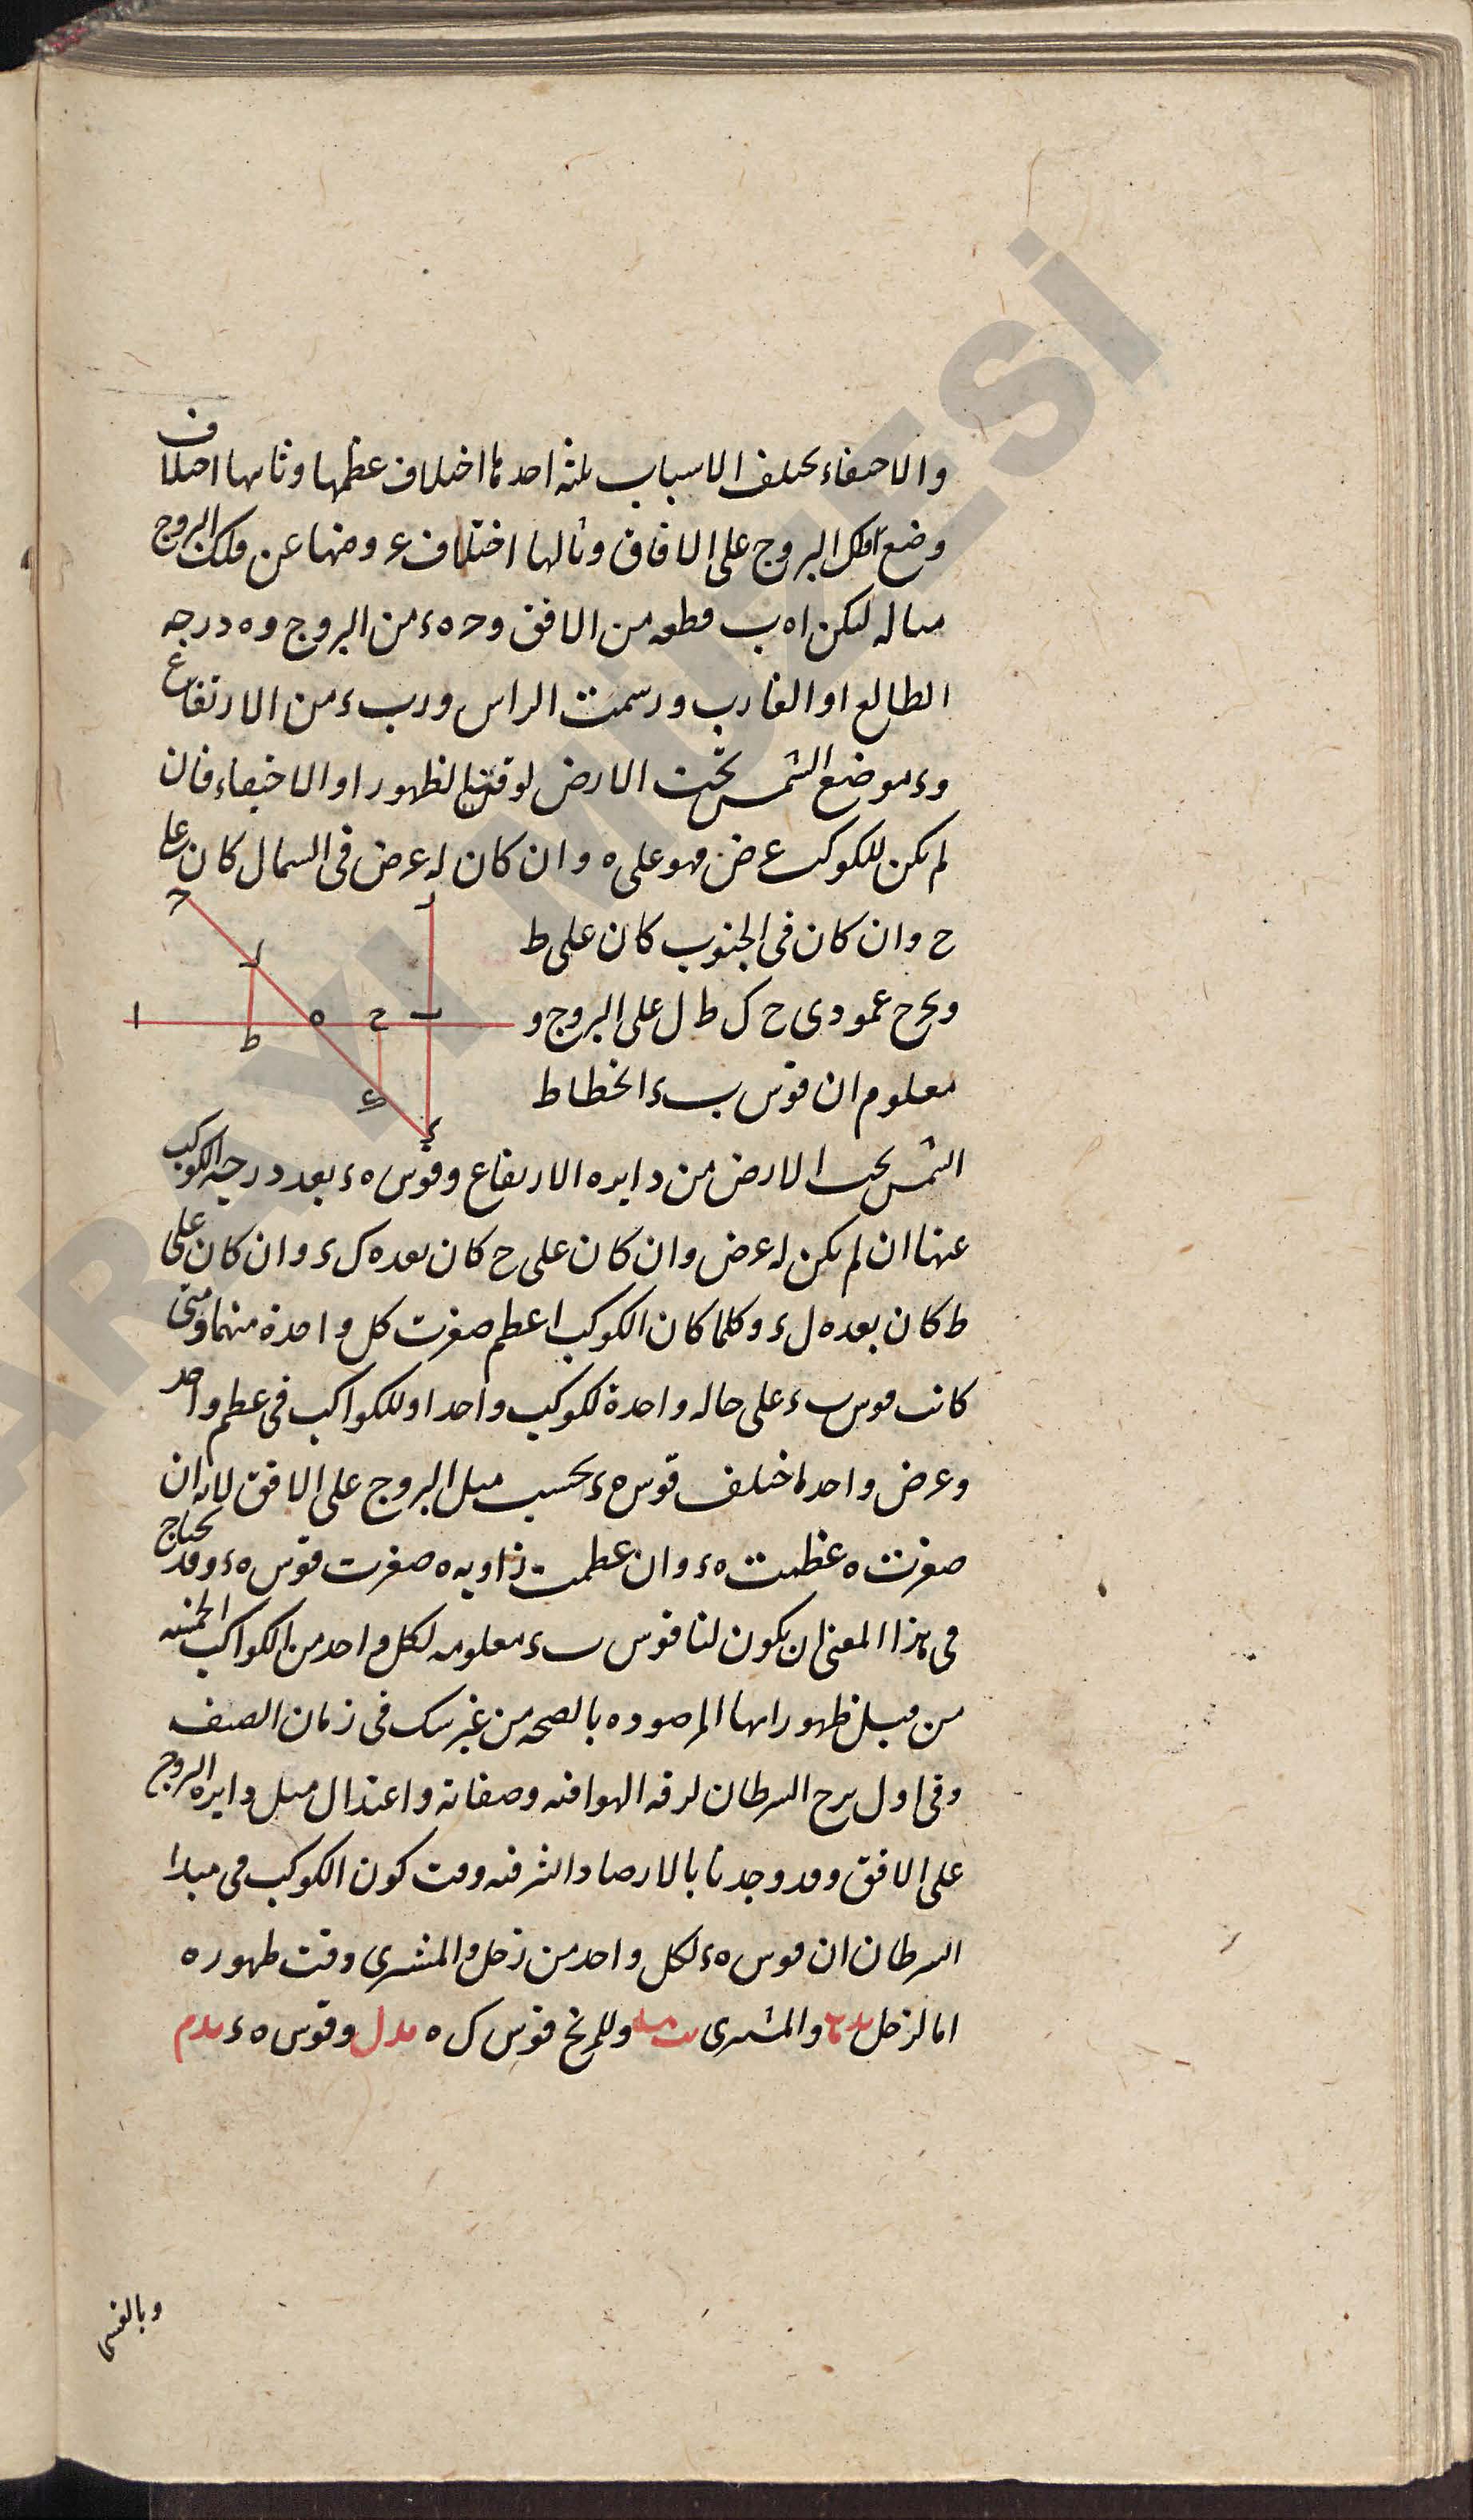 والاختفاء يختلف لاسباب ثلثه احدها اختلاف عظمها وثانيها اختلاف
وضع فلك البروج على الافاق وثالثها اختلاف عروضها عن فلك البروج
مثاله ليكن اه ب قطعه من الافق وح ه ء من البروج وه درجه
الطالع او الغارب ور سمت الراس ورب ء من الارتفاع
وء موضع الشمس تحت الارض لوقت الظهور او الاختفاء فان
لم يكن للكوكب عرض فهو على ه وان كان له عرض فى الشمال كان على
ح وان كان فى الجنوب كان على ط
ونخرج عمودى ح ك ط ل على البروج و
معلوم ان قوس ب ء انحطاط
الشمس تحت الارض من دايره الارتفاع وقوس ه ء بعد درجه الكوكب
عنها ان لم يكن له عرض وان كان على ح كان بعده ك ء وان كان على
ط كان بعده ل ء وكلما كان الكوكب اعظم صغرت كل واحدة منهما ومتى
كانت قوس ب ء على حاله واحدة لكوكب واحد او للكواكب فى عظم واحد
وعرض واحد اختلف قوس ه ء بحسب ميل البروج على الافق لانه ان
صغرت ه عظمت ه ء وان عظمت زاويه ه صغرت قوس ه ء وقد نحتاج
فى هذا المعنى ان يكون لنا قوس ب ء معلومه لكل واحد من الكواكب الخمسه
من قبل ظهوراتها المرصوده بالصحه من غير شك فى زمان الصيف
وفى اول برج السرطان لرقه الهوا فيه وصفائه واعتدال ميل دايره البروج
على الافق وقد وجدنا بالارصاد الشرقيه وقت كون الكوكب فى مبدا
السرطان ان قوس ه ء لكل واحد من زحل والمشترى وقت ظهوره
اما لزحل والمشترى وللمريخ قوس ك ه يد ل وقوس ه ء يد م
ر
ح
ل
ا
ه
ح
ب
ط
ك
ء
وبالقسى
ARAYI MÜZESİ